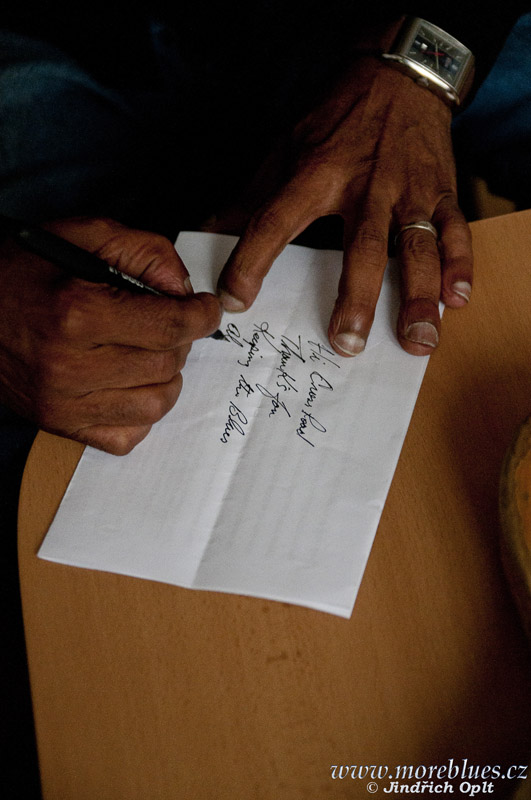 Hi Cross Road
Thank's for
Keeping the Blues
al
www.moreblues.cz
© Jindřich Oplt